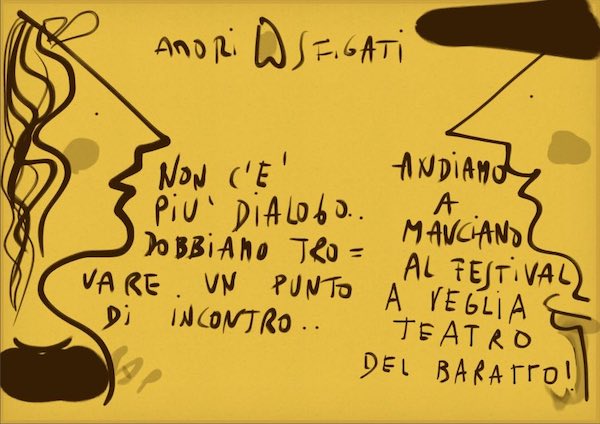 AMORI SFIGATI
NON C'E'
PIU' DIALOGO..
DOBBIAMO TRO=
VARE UN PUNTO
DI INCONTRO..
ANDIAMO
A
MANCIANO
AL FESTIVAL
A VEGLIA
TEATRO
DEL BARATTO!